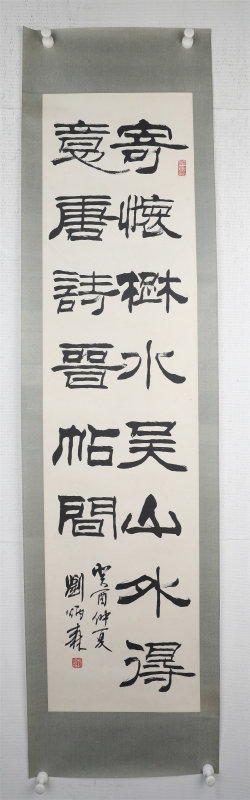 寄懷楙水吴山外得
意唐詩晉帖間
癸酉仲夏
劉炳森